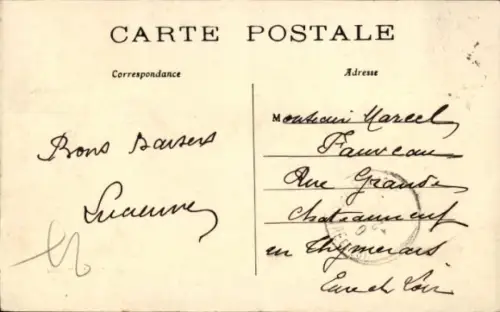 CARTE POSTALE
Correspondance
Adresse
Bons Baisers
Lucienne
Monsieur Marcel
Fauveau
Rue Grande
Chateauneuf
en Thymerais
Eure et Loir